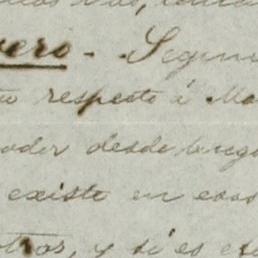 vero. - Segun
respecto á Ma
oder desde luego
existe en esos
otros, y si es